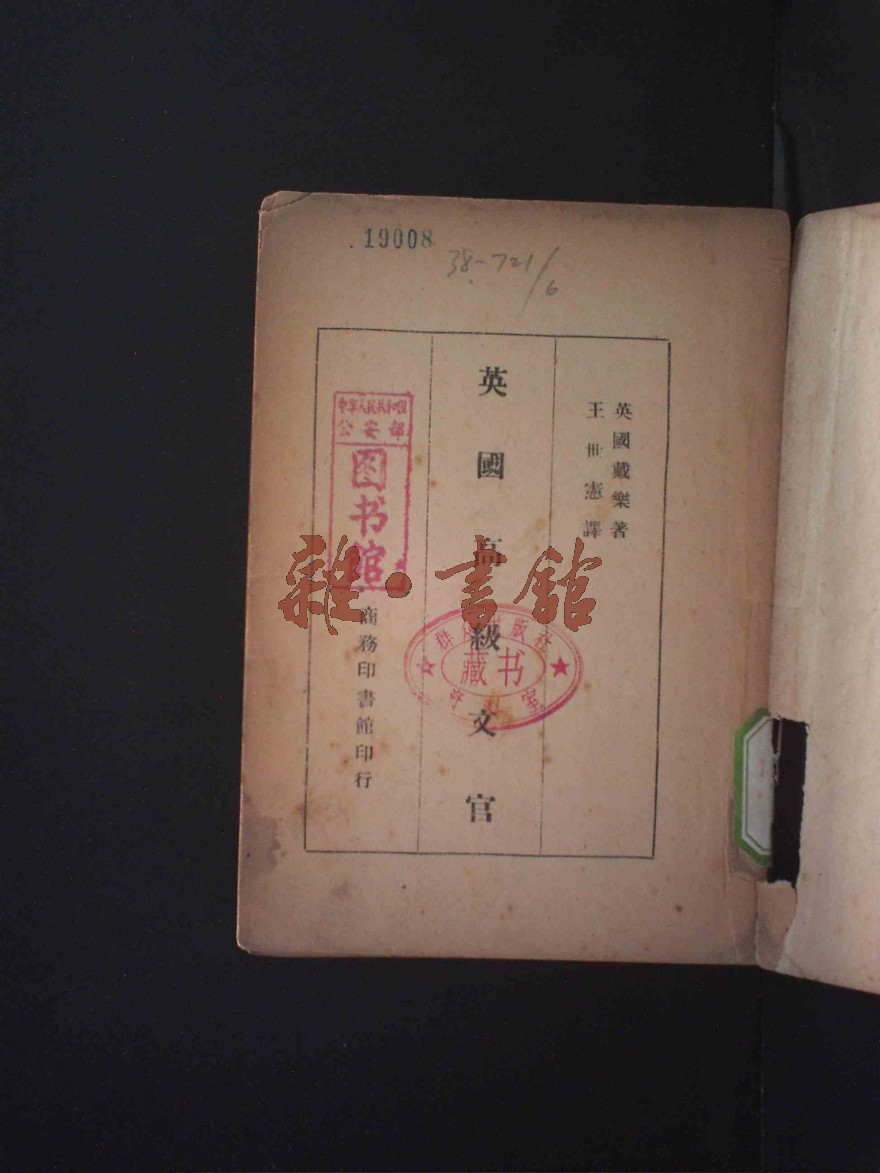 .19008
38-721/6
英國戴樂著
王世憲譯
英國高級文官
商務印書館印行
中华人民共和国
公安部
图书馆
群众出版社
藏书
雜·書館